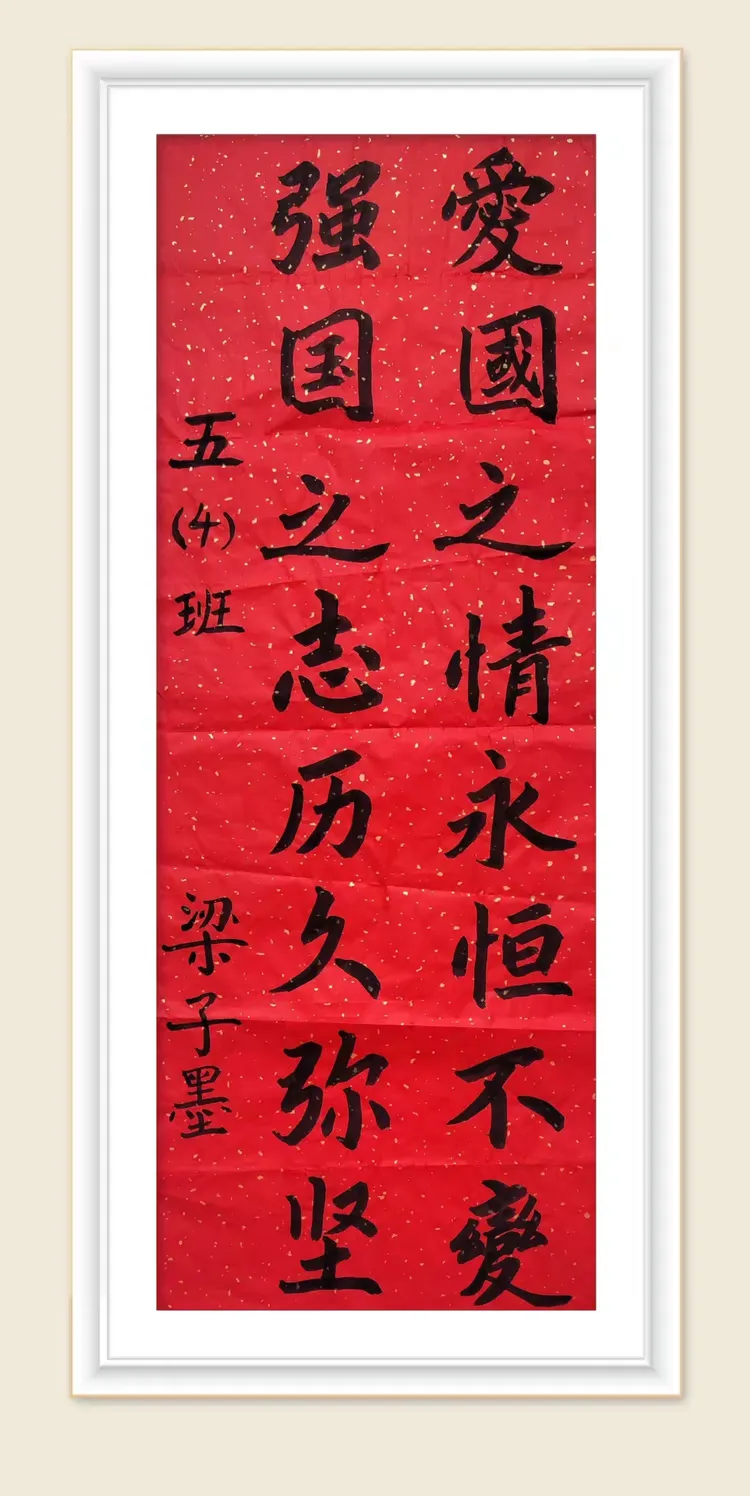 愛國之情永恒不變
强国之志历久弥坚
五(4)班
梁子墨